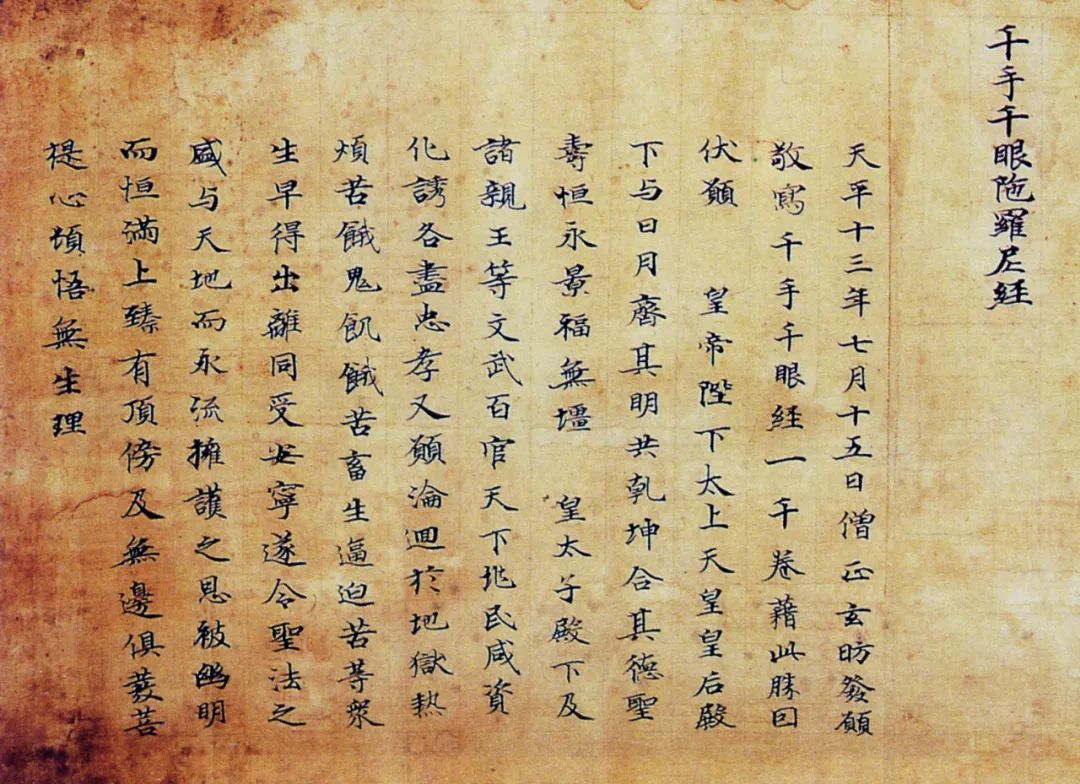 千手千眼陁羅尼経
天平十三年七月十五日僧正玄昉發願
敬寫千手千眼経一千卷藉此勝因
伏願 皇帝陛下太上天皇皇后殿
下与日月齊其明共乾坤合其德聖
壽恒永景福無壃 皇太子殿下及
諸親王等文武百官天下兆民咸資
化誘各盡忠孝又願淪迴於地獄熱
煩苦餓鬼飢餓苦畜生逼迫苦等衆
生早得出離同受安寧遂令聖法之
盛与天地而永流擁護之恩被幽明
而恒滿上臻有頂傍及無邊俱發菩
提心頓悟無生理